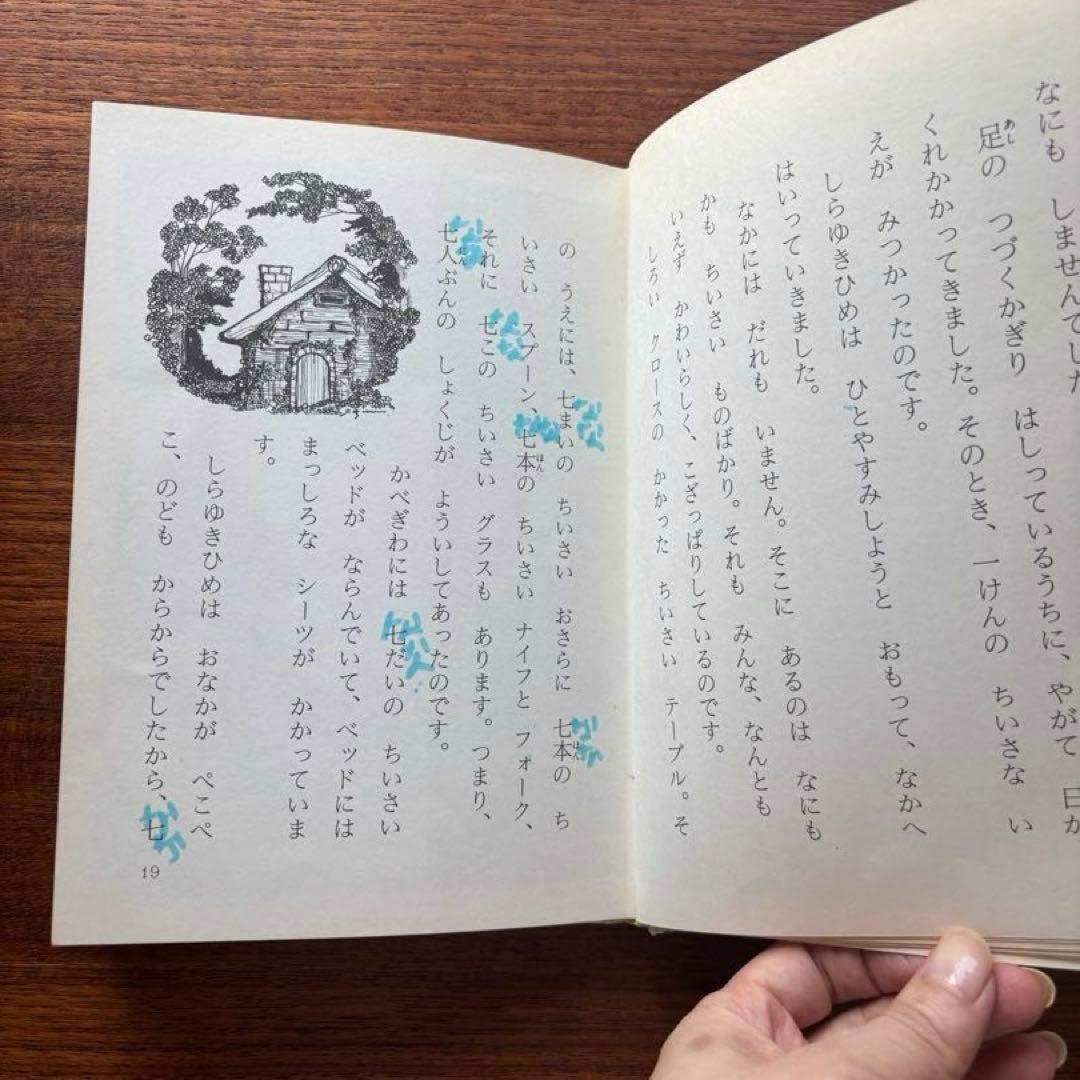 なにも しませんでした
足の つづくかぎり はしっているうちに、やがて 日が
くれかかってきました。そのとき、一けんの ちいさな い
えが みつかったのです。
しらゆきひめは ひとやすみしようと おもって、なかへ
はいっていきました。
なかには だれも いません。そこに あるのは なにも
かも ちいさい ものばかり。それも みんな、なんとも
いえず かわいらしく、こざっぱりしているのです。
しろい クロースの かかった ちいさい テーブル。そ
の うえには、七まいの ちいさい おさらに 七本の ち
いさい スプーン、七本の ちいさい ナイフと フォーク、
それに 七この ちいさい グラスも あります。つまり、
七人ぶんの しょくじが よういしてあったのです。
かべぎわには 七だいの ちいさい
ベッドが ならんでいて、ベッドには
まっしろな シーツが かかっていま
す。
しらゆきひめは おなかが ぺこぺ
こ、のども からからでしたから、七
19